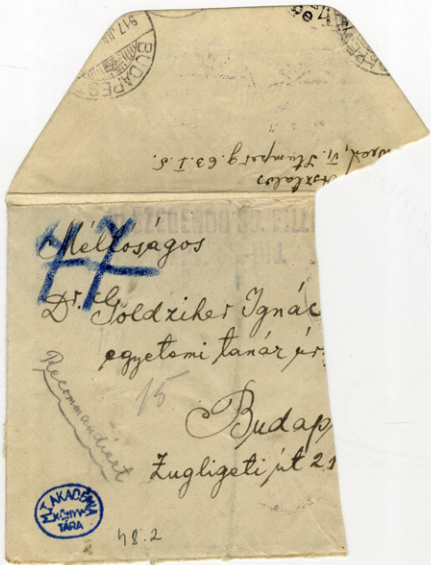 BUDAPEST
917 JU
Wien, VI. Stumperg. 63. I. 5.
BESZEDENDŐ
FILL
Méltóságos
Dr. Goldziher Ignác
egyetemi tanár úr
Recommandirt
15
Budap
Zugligeti út 21
M. T. AKADÉMIA
KÖNYV
TÁRA
48.2